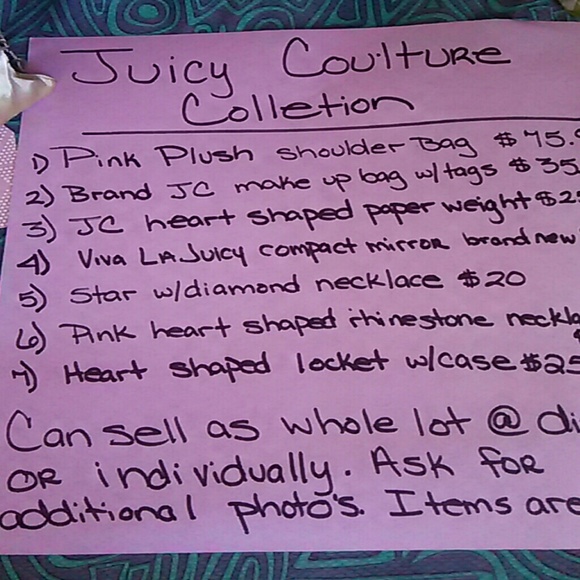 Juicy Coulture
Colletion
1) Pink Plush shoulder Bag $75.
2) Brand JC make up bag w/tags $35
3) JC heart shaped paper weight $2
4) Viva LA Juicy compact mirror brand new
5) Star w/diamond necklace $20
6) Pink heart shaped rhinestone neckla
7) Heart shaped locket w/case $25
Can sell as whole lot @ di
OR individually. Ask for
additional photo's. Items are